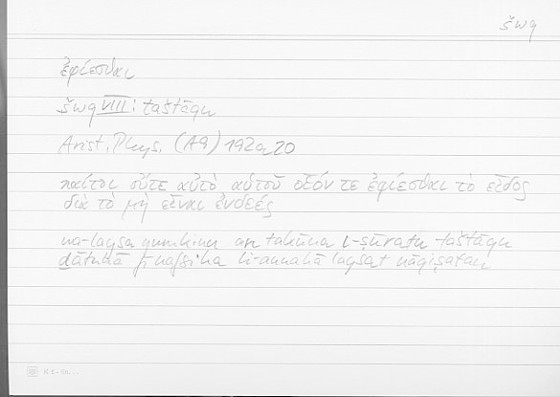 šwq
ἐφίεσθαι
šwq VIII: taštāqu
Arist. Phys. (A9) 192a20
καίτοι οὔτε αὐτὸ αὑτοῦ οἷόν τε ἐφίεσθαι τὸ εἶδος
διὰ τὸ μὴ εἶναι ἐνδεές
wa-laysa yumkinu an takūna l-ṣūratu taštāqu
ḏātuhā fī nafsihā li-annahā laysat nāqiṣatan